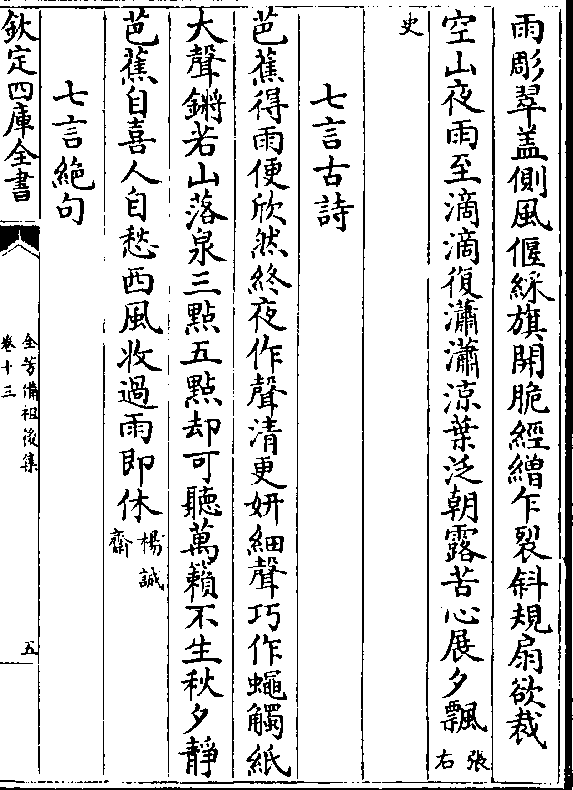 雨彫翠盖側風偃綵旗開脆經繒乍裂斜規扇欲裁
空山夜雨至滴滴復瀟瀟涼葉泛朝露苦心展夕飄張右
史
七言古詩
芭蕉得雨便欣然終夜作聲清更妍細聲巧作蠅觸紙
大聲鏘若山落泉三點五點却可聽萬籟不生秋夕靜
芭蕉自喜人自愁西風收過雨即休楊誠齋
七言絕句
欽定四庫全書
全芳備祖後集
卷十三
五